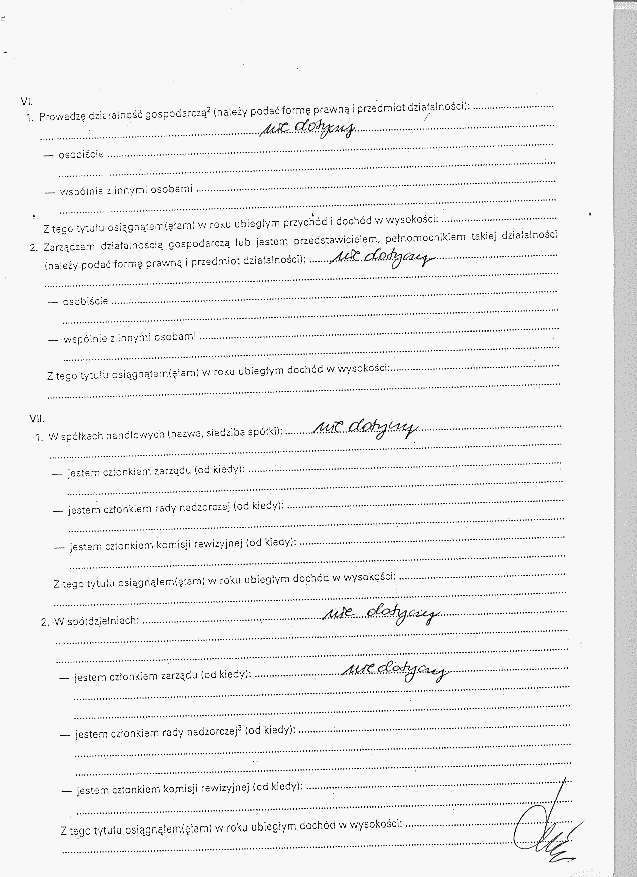 VI.
1. Prowadzę działalność gospodarczą² (należy podać formę prawną i przedmiot działalności): ..........
.......... nie dotyczy ..........
— osobiście ..........
..........
— wspólnie z innymi osobami ..........
..........
Z tego tytułu osiągnąłem(ęłam) w roku ubiegłym przychód i dochód w wysokości: ..........
2. Zarządzam działalnością gospodarczą lub jestem przedstawicielem, pełnomocnikiem takiej działalności
(należy podać formę prawną i przedmiot działalności): .......... nie dotyczy ..........
..........
— osobiście ..........
..........
— wspólnie z innymi osobami ..........
..........
Z tego tytułu osiągnąłem(ęłam) w roku ubiegłym dochód w wysokości: ..........
..........
VII.
1. W spółkach handlowych (nazwa, siedziba spółki): .......... nie dotyczy ..........
..........
— jestem członkiem zarządu (od kiedy): ..........
..........
— jestem członkiem rady nadzorczej (od kiedy): ..........
..........
— jestem członkiem komisji rewizyjnej (od kiedy): ..........
..........
Z tego tytułu osiągnąłem(ęłam) w roku ubiegłym dochód w wysokości: ..........
..........
2. W spółdzielniach: .......... nie dotyczy ..........
..........
..........
— jestem członkiem zarządu (od kiedy): .......... nie dotyczy ..........
..........
..........
— jestem członkiem rady nadzorczej³ (od kiedy): ..........
..........
..........
— jestem członkiem komisji rewizyjnej (od kiedy): ..........
..........
Z tego tytułu osiągnąłem(ęłam) w roku ubiegłym dochód w wysokości: ..........
..........